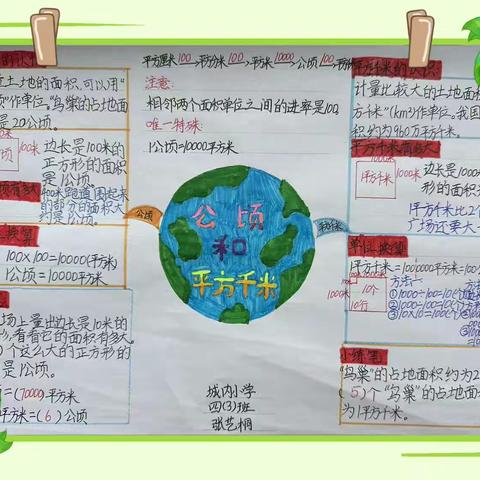 平方厘米 100 平方分米 100 平方米 10000 公顷 100
注意:
相邻两个面积单位之间的进率是100,
唯一特殊:
1公顷=10000平方米
土地的面积,可以用"
"作单位。"鸟巢"的占地面
是20公顷。
公顷 100米
边长是100米的
正方形的面积
是1公顷。
400米跑道围起来
的部分的面积大
约是1公顷。
换算
100×100=10000(平方米)
1公顷=10000平方米
场上量出边长是10米的
,看看它的面积有多大。
)个这么大的正方形的
是1公顷。
=(70000)平方米
平方米=(6)公顷
公顷
公顷
和
平方千米
平方千米
城内小学
四(3)班
张艺桐
平方千米的认识
计量比较大的土地面积
方千米"(km²)作单位。我国
积约为960万平方千米。
平方千米有多大
1平方千米
边长是1000米
形的面积
1平方千米比2个
广场还要大
单位换算
1平方千米=1000000平方米=100
1000米
10个
10行
方法一:
①1000÷100=10(个)
②1000÷100=10(行)
③10×10=100(个)
小练笔
"鸟巢"的占地面积约为2
(5)个"鸟巢"的占地面
为1平方千米。